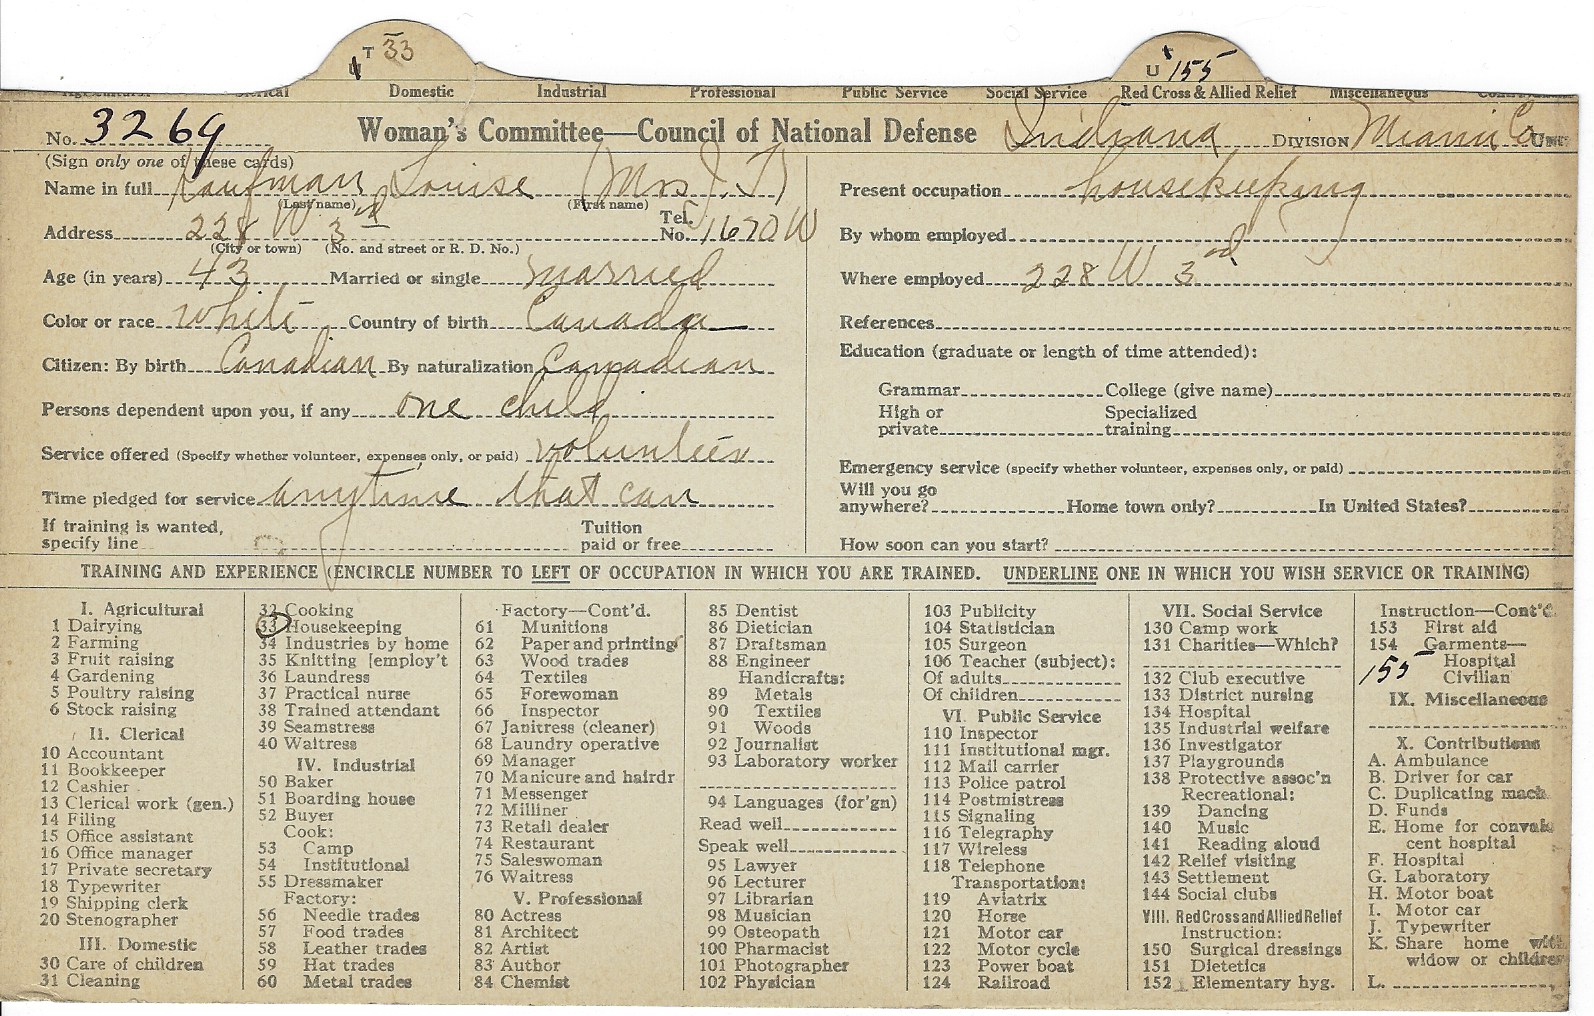 T 33
U 155
Agricultural Clerical Domestic Industrial Professional Public Service Social Service Red Cross & Allied Relief Miscellaneous
No. 3269 Woman's Committee—Council of National Defense Indiana DIVISION Miami Co. UNIT
(Sign only one of these cards)
Name in full Kaufman Louise (Mrs J. T)
(Last name) (First name)
Address 228 W 3rd Tel. No. 1670 W
(City or town) (No. and street or R. D. No.)
Age (in years) 43 Married or single married
Color or race white Country of birth Canada
Citizen: By birth Canadian By naturalization Canadian
Persons dependent upon you, if any one child
Service offered (Specify whether volunteer, expenses only, or paid) volunteer
Time pledged for service anytime that can
If training is wanted, specify line Tuition paid or free
Present occupation housekeeping
By whom employed
Where employed 228 W 3rd
References
Education (graduate or length of time attended):
Grammar College (give name)
High or private Specialized training
Emergency service (specify whether volunteer, expenses only, or paid)
Will you go anywhere? Home town only? In United States?
How soon can you start?
TRAINING AND EXPERIENCE (ENCIRCLE NUMBER TO LEFT OF OCCUPATION IN WHICH YOU ARE TRAINED. UNDERLINE ONE IN WHICH YOU WISH SERVICE OR TRAINING)
I. Agricultural
1 Dairying
2 Farming
3 Fruit raising
4 Gardening
5 Poultry raising
6 Stock raising
II. Clerical
10 Accountant
11 Bookkeeper
12 Cashier
13 Clerical work (gen.)
14 Filing
15 Office assistant
16 Office manager
17 Private secretary
18 Typewriter
19 Shipping clerk
20 Stenographer
III. Domestic
30 Care of children
31 Cleaning
32 Cooking
33 Housekeeping
34 Industries by home
35 Knitting [employ't
36 Laundress
37 Practical nurse
38 Trained attendant
39 Seamstress
40 Waitress
IV. Industrial
50 Baker
51 Boarding house
52 Buyer
Cook:
53 Camp
54 Institutional
55 Dressmaker
Factory:
56 Needle trades
57 Food trades
58 Leather trades
59 Hat trades
60 Metal trades
Factory—Cont'd.
61 Munitions
62 Paper and printing
63 Wood trades
64 Textiles
65 Forewoman
66 Inspector
67 Janitress (cleaner)
68 Laundry operative
69 Manager
70 Manicure and hairdr
71 Messenger
72 Milliner
73 Retail dealer
74 Restaurant
75 Saleswoman
76 Waitress
V. Professional
80 Actress
81 Architect
82 Artist
83 Author
84 Chemist
85 Dentist
86 Dietician
87 Draftsman
88 Engineer
Handicrafts:
89 Metals
90 Textiles
91 Woods
92 Journalist
93 Laboratory worker
94 Languages (for'gn)
Read well
Speak well
95 Lawyer
96 Lecturer
97 Librarian
98 Musician
99 Osteopath
100 Pharmacist
101 Photographer
102 Physician
103 Publicity
104 Statistician
105 Surgeon
106 Teacher (subject):
Of adults
Of children
VI. Public Service
110 Inspector
111 Institutional mgr.
112 Mail carrier
113 Police patrol
114 Postmistress
115 Signaling
116 Telegraphy
117 Wireless
118 Telephone
Transportation:
119 Aviatrix
120 Horse
121 Motor car
122 Motor cycle
123 Power boat
124 Railroad
VII. Social Service
130 Camp work
131 Charities—Which?
132 Club executive
133 District nursing
134 Hospital
135 Industrial welfare
136 Investigator
137 Playgrounds
138 Protective assoc'n
Recreational:
139 Dancing
140 Music
141 Reading aloud
142 Relief visiting
143 Settlement
144 Social clubs
VIII. Red Cross and Allied Relief
Instruction:
150 Surgical dressings
151 Dietetics
152 Elementary hyg.
Instruction—Cont'd.
153 First aid
154 Garments—
Hospital
155 Civilian
IX. Miscellaneous
X. Contributions
A. Ambulance
B. Driver for car
C. Duplicating mach.
D. Funds
E. Home for convales
cent hospital
F. Hospital
G. Laboratory
H. Motor boat
I. Motor car
J. Typewriter
K. Share home with
widow or children
L.